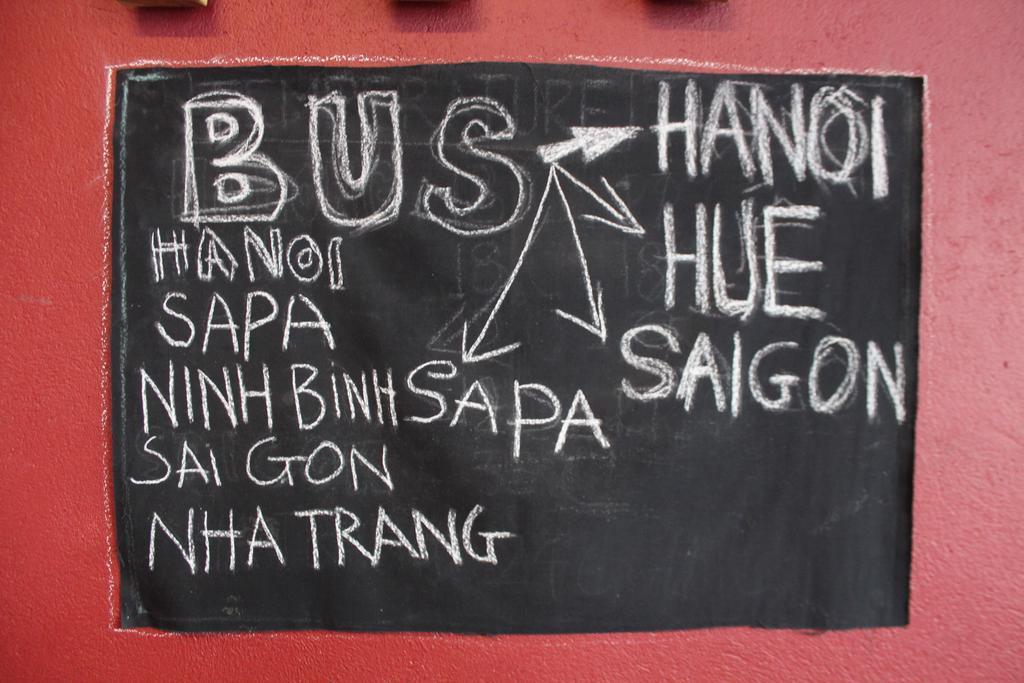 BUS
HANOI
SAPA
NINH BINH
SAI GON
NHA TRANG
HANOI
HUE
SAIGON
SAPA